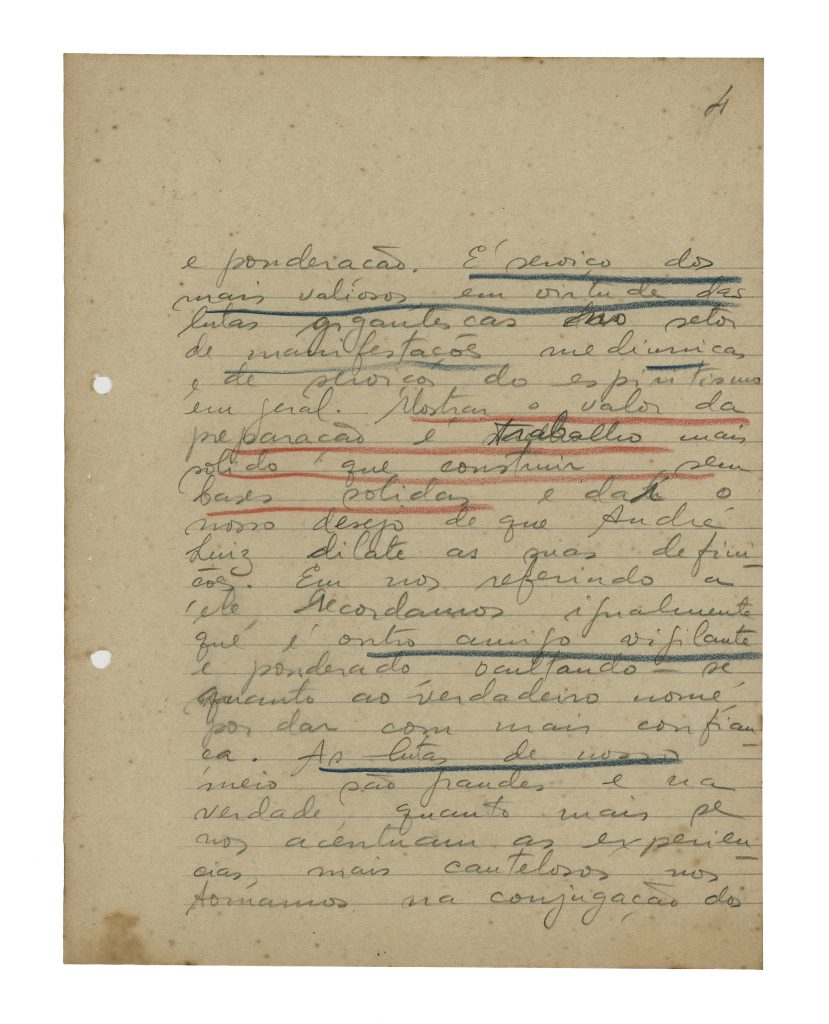 4
e ponderacão. É serviço dos
mais valiosos, em virtude das
lutas gigantescas no setor
de manifestações mediunicas
e de serviços do espiritismo
em geral. Mostrar o valor da
preparação é trabalho mais
solido que construir sem
bases solidas e daí o
nosso desejo de que André
Luiz dilate as suas defini-
ções. Em nos referindo a
ele, recordamos igualmente
que é outro amigo vigilante
e ponderado ocultando-se
quanto ao verdadeiro nome,
por dar com mais confian-
ca. As lutas de nosso
meio são grandes e na
verdade, quanto mais se
nos acentuam as experien-
cias, mais cautelosos nos
tornamos na conjugação dos